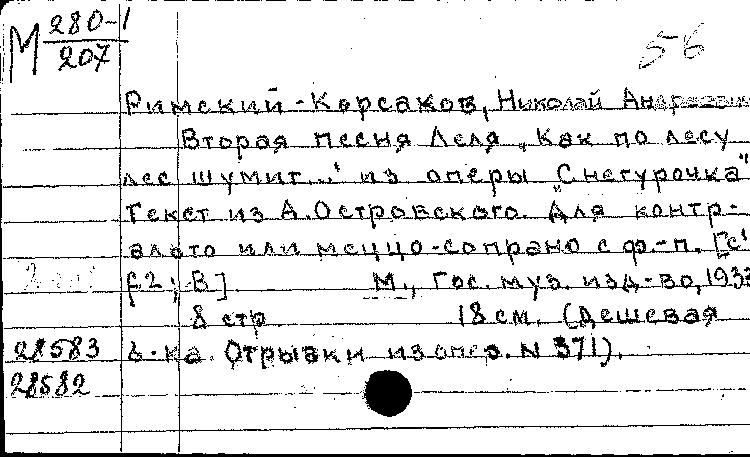 М 280-1
207
56
Римский-Корсаков, Николай
Вторая песня Леля „Как по лесу
лес шумит..." из оперы „Снегурочка"
Текст из А. Островского. Для контр-
альто или меццо-сопрано с ф.-п. [c¹
f2; В] М., Гос. муз. изд-во,
8 стр 18 см. (Дешевая
28583 б-ка. Отрывки из опер. N 371).
28582